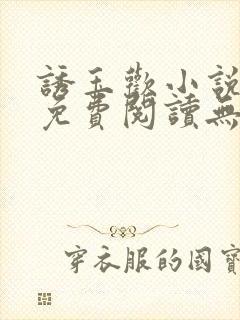 誘玉歡小說
免費閱讀無
穿衣服的國寶